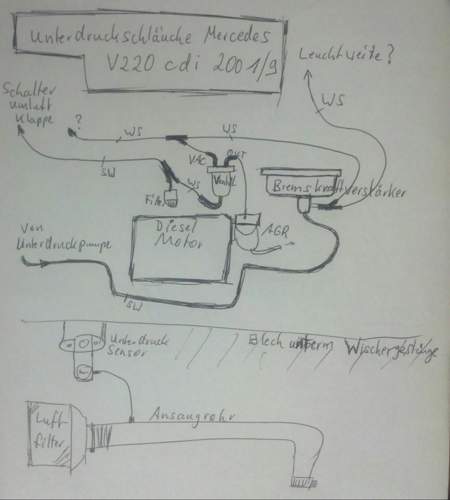 Unterdruckschläuche Mercedes
V220 cdi 2001/9
Leuchtweite?
Schalter
Umluft
Klappe
?
WS
WS
WS
VAC
OUT
SW
WS
Ventil
Filter
Bremskraftverstärker
Diesel
Motor
AGR
Von
Unterdruckpumpe
SW
Unterdruck
Sensor
Blech unterm Wischergestänge
Luft
filter
Ansaugrohr